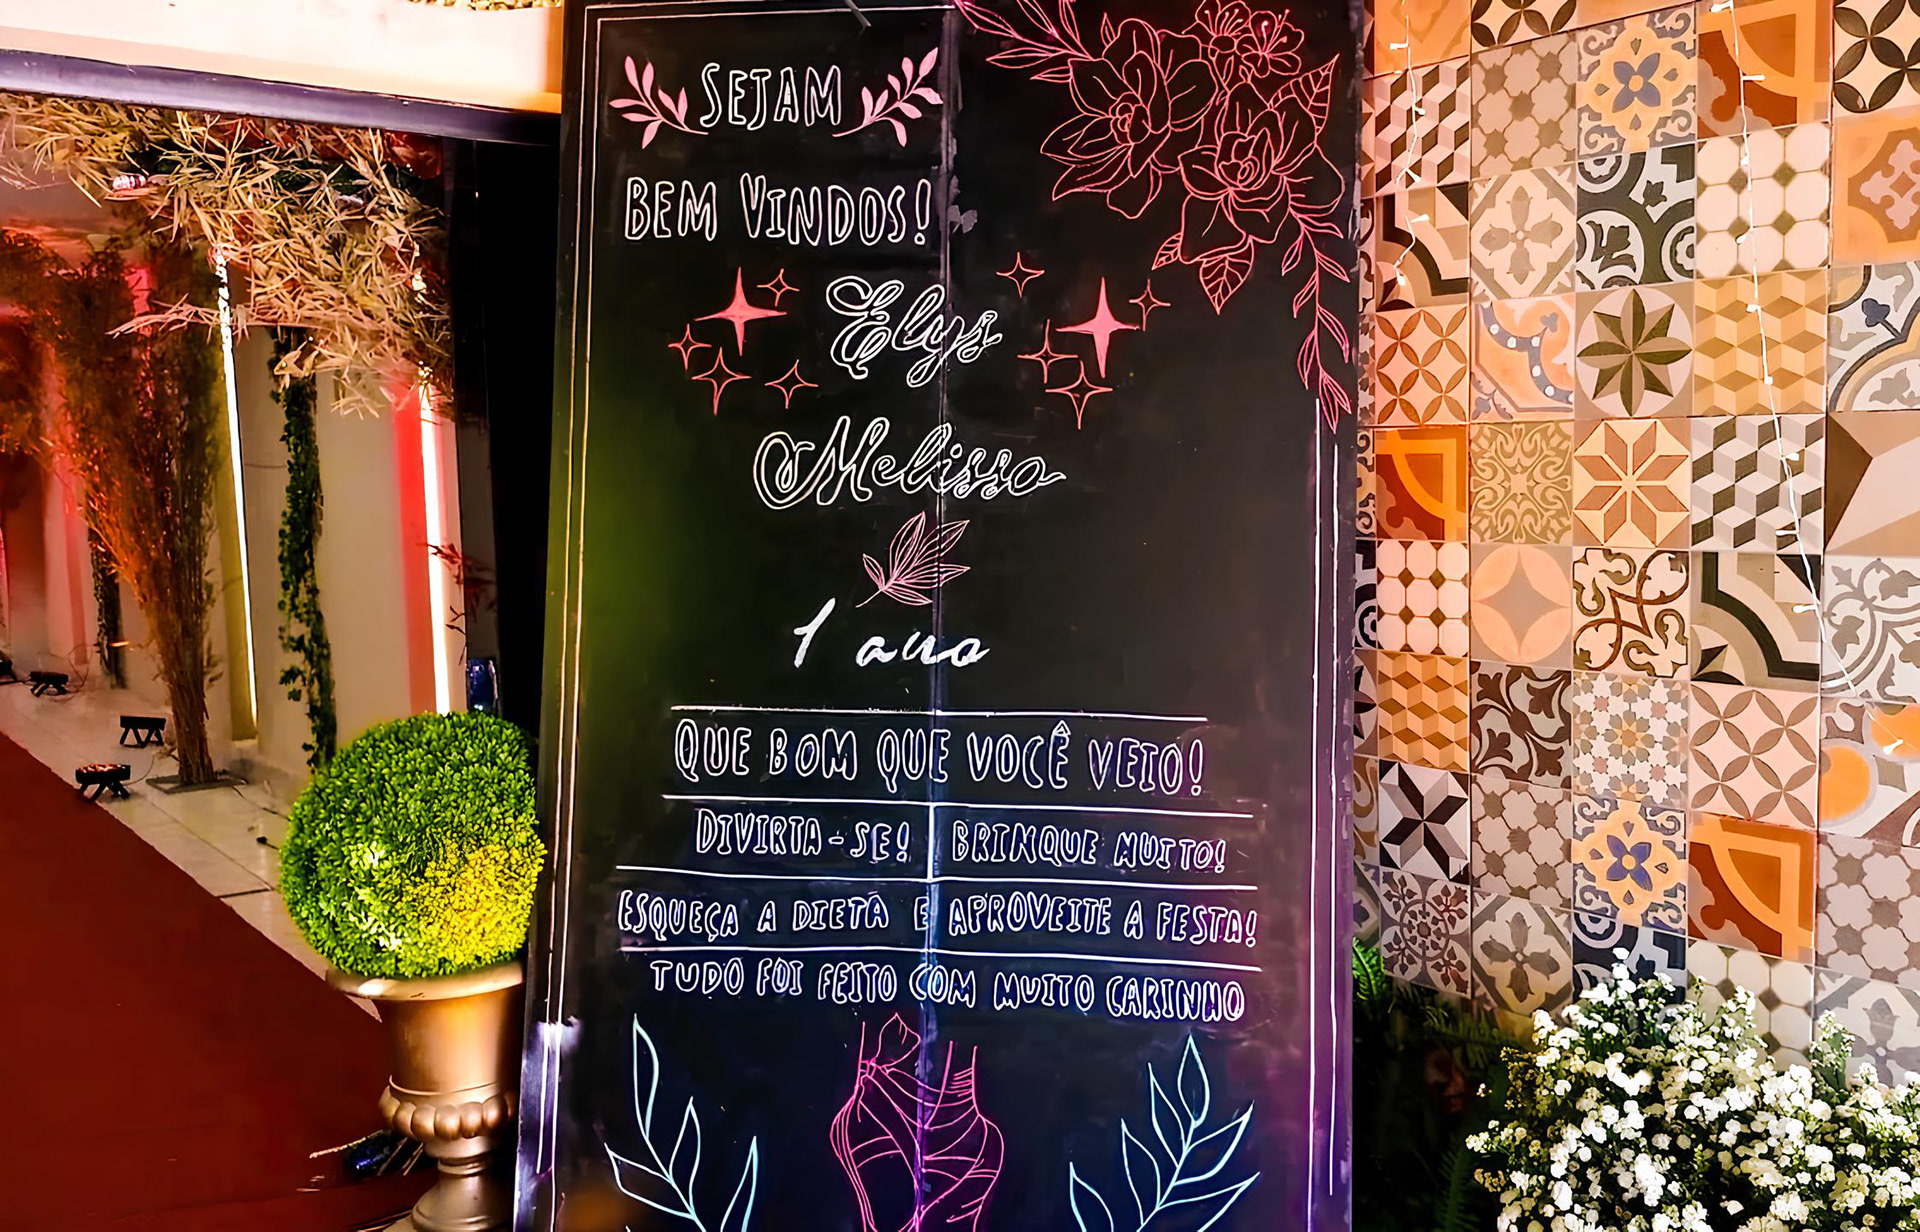 SEJAM
BEM VINDOS!
Elys
Melissa
1 ano
QUE BOM QUE VOCÊ VEIO!
DIVIRTA-SE! BRINQUE MUITO!
ESQUEÇA A DIETA E APROVEITE A FESTA!
TUDO FOI FEITO COM MUITO CARINHO